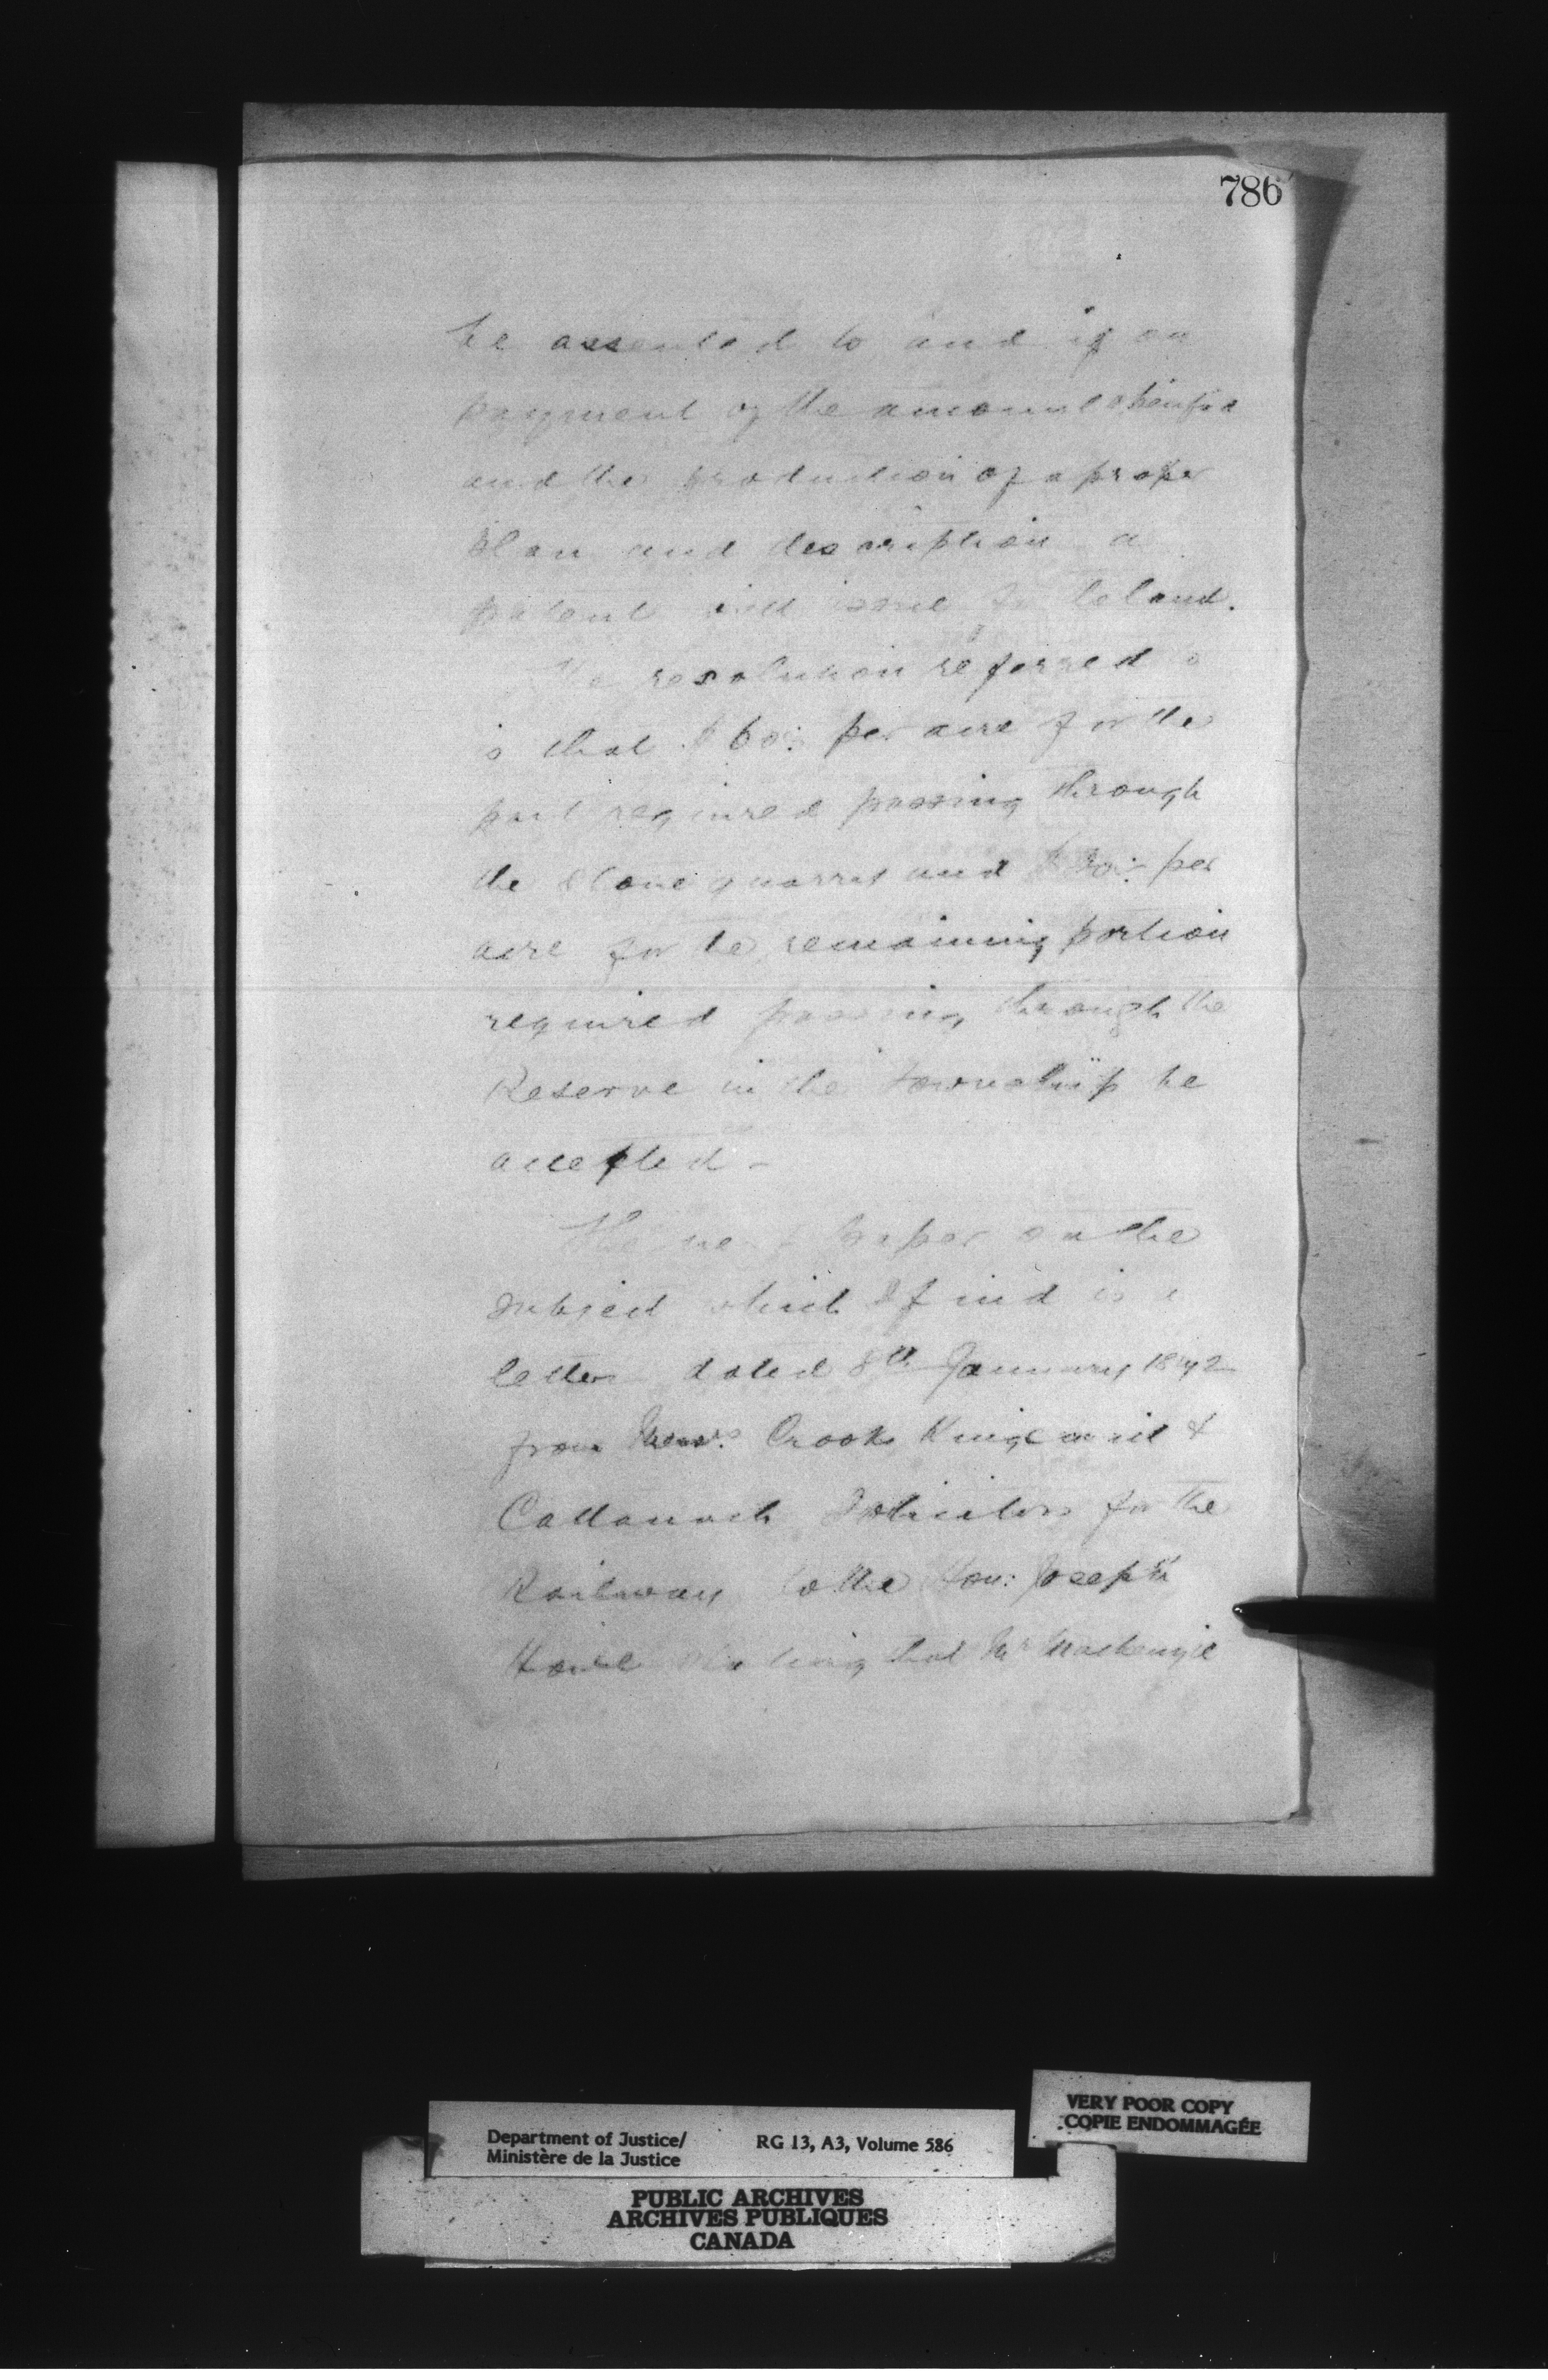 786
be assented to and if on
payment of the amount
and the production of a proper
plan and description a
patent will issue for the land.
The resolution referred to
is that $60: per acre for the
part required passing through
the stone quarry and per
acre for the remaining portion
required passing through the
Reserve in the Township be
accepted -
The next paper on the
subject which I find is a
letter dated 8th January 1872
from Messrs. Crooks Kingsmill &
Cattanach Solicitors for the
Railway to the Hon: Joseph
Howe stating that Mr Mackenzie
VERY POOR COPY
COPIE ENDOMMAGÉE
Department of Justice/ RG 13, A3, Volume 586
Ministère de la Justice
PUBLIC ARCHIVES
ARCHIVES PUBLIQUES
CANADA